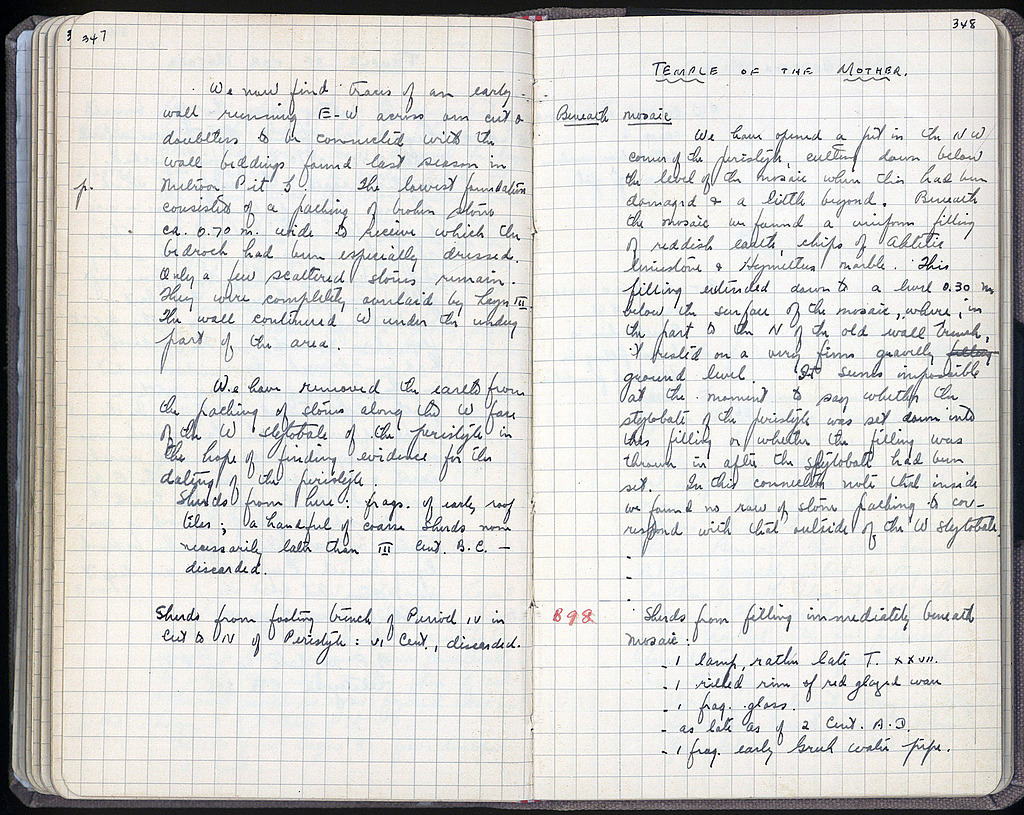 347
We now find traces of an early
wall running E-W across our cut &
doubtless to be connected with the
wall beddings found last season in
p. Metroon Pit 5. The lowest foundation
consisted of a packing of broken stone
ca. 0.70 m. wide to receive which the
bedrock had been especially dressed.
Only a few scattered stones remain.
They were completely overlaid by III
The wall continued W under the
part of the area.
We have removed the earth from
the packing of stones along the W face
of the W stylobate of the peristyle in
the hope of finding evidence for the
dating of the peristyle.
Sherds from here: frags. of early roof
tiles; a handful of coarse sherds none
necessarily later than III Cent. B.C. —
discarded.
Sherds from footing trench of Period IV in
Cut to N of Peristyle: VI Cent., discarded.
348
TEMPLE OF THE MOTHER.
Beneath mosaic
We have opened a pit in the NW
corner of the peristyle, cutting down below
the level of the mosaic where this had been
damaged & a little beyond. Beneath
the mosaic we found a uniform filling
of reddish earth, chips of
limestone & Hymettus marble. This
filling extended down to a level 0.30 m
below the surface of the mosaic, where, in
the part to the N of the old wall trench,
it rested on a very firm gravelly filling
ground level. It seems impossible
at the moment to say whether the
stylobate of the peristyle was set down into
this filling or whether the filling was
thrown in after the stylobate had been
set. In this connection note that inside
we found no row of stone packing to cor-
respond with that outside of the W stylobate.
B 98 Sherds from filling immediately beneath
mosaic.
- 1 lamp, rather late T. XXVII.
- 1 rilled rim of red glazed ware
- 1 frag. glass.
- as late as of 2 Cent. A.D.
- 1 frag. early Greek water pipe.